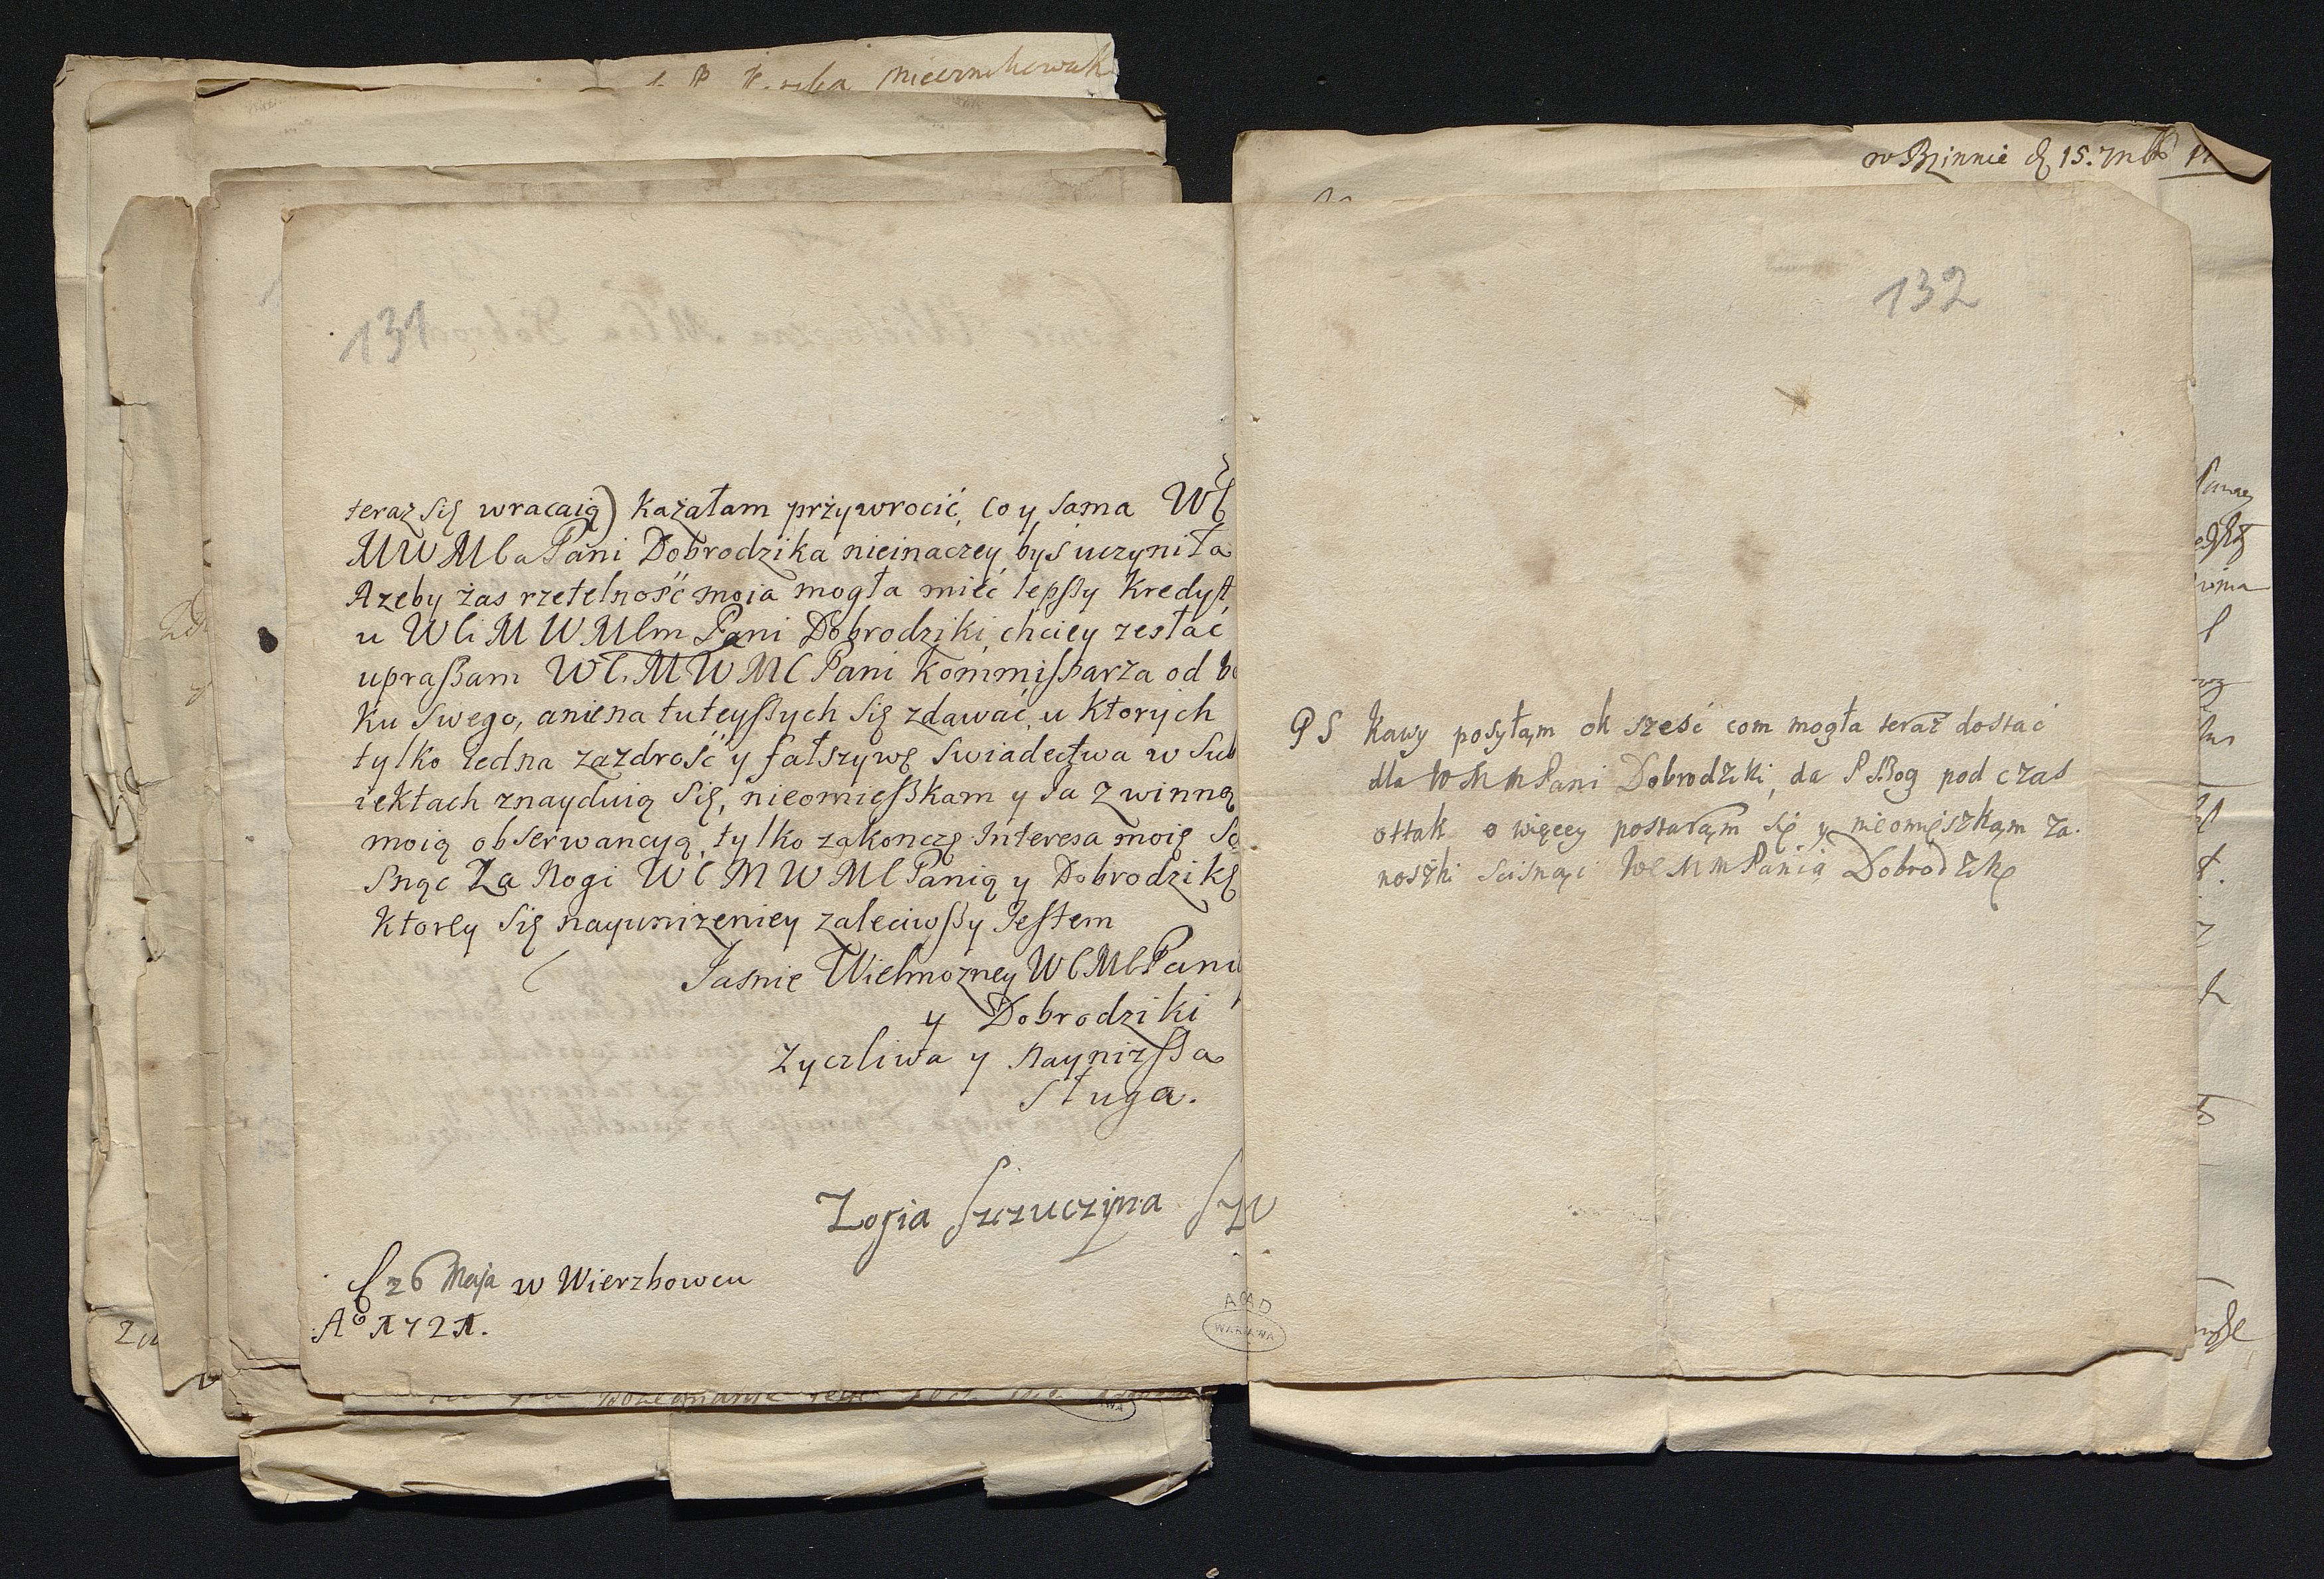 131
teraz się wracaią) kazałam przywrocić, co y sama WC
MWMCa Pani Dobrodzika nieinaczey byś uczyniła
Azeby zas rzetelność moia mogła mieć lepszy kredyt,
u WCi MWMCm Pani Dobrodziki, chciey zesłać
upraszam WC. MWMC Pani kommiszarza od bo
ku swego, anie na tuteyszych się zdawać, u ktorych
tylko iedna zazdrość y fałszywę swiadectwa w sub
iektach znayduią się, nieomieszkam y Ja z winną
moią obserwancyą, tylko zakonczę Interesa moię
snąc Za Nogi WC MWMC Panią y Dobrodzikę
ktorey się nayunizeniey zaleciwszy Jestem
Jasnie Wielmozney WC MC Pani
y Dobrodziki
zyczliwa y naynizsza
sługa.
Zofia Szczuczyna
26 Maja w Wierzbowcu
Aº 1721.
132
PS Kawy posyłam ok sześć com mogła teraz dostać
dla WMM Pani Dobrodziki, da P Bog pod czas
ottak o więcey postaram się y nieomięszkam za
noszki scisnąć WC MM Panią Dobrodzikę
AGAD
WARSZAWA
w Brzinnie 15.